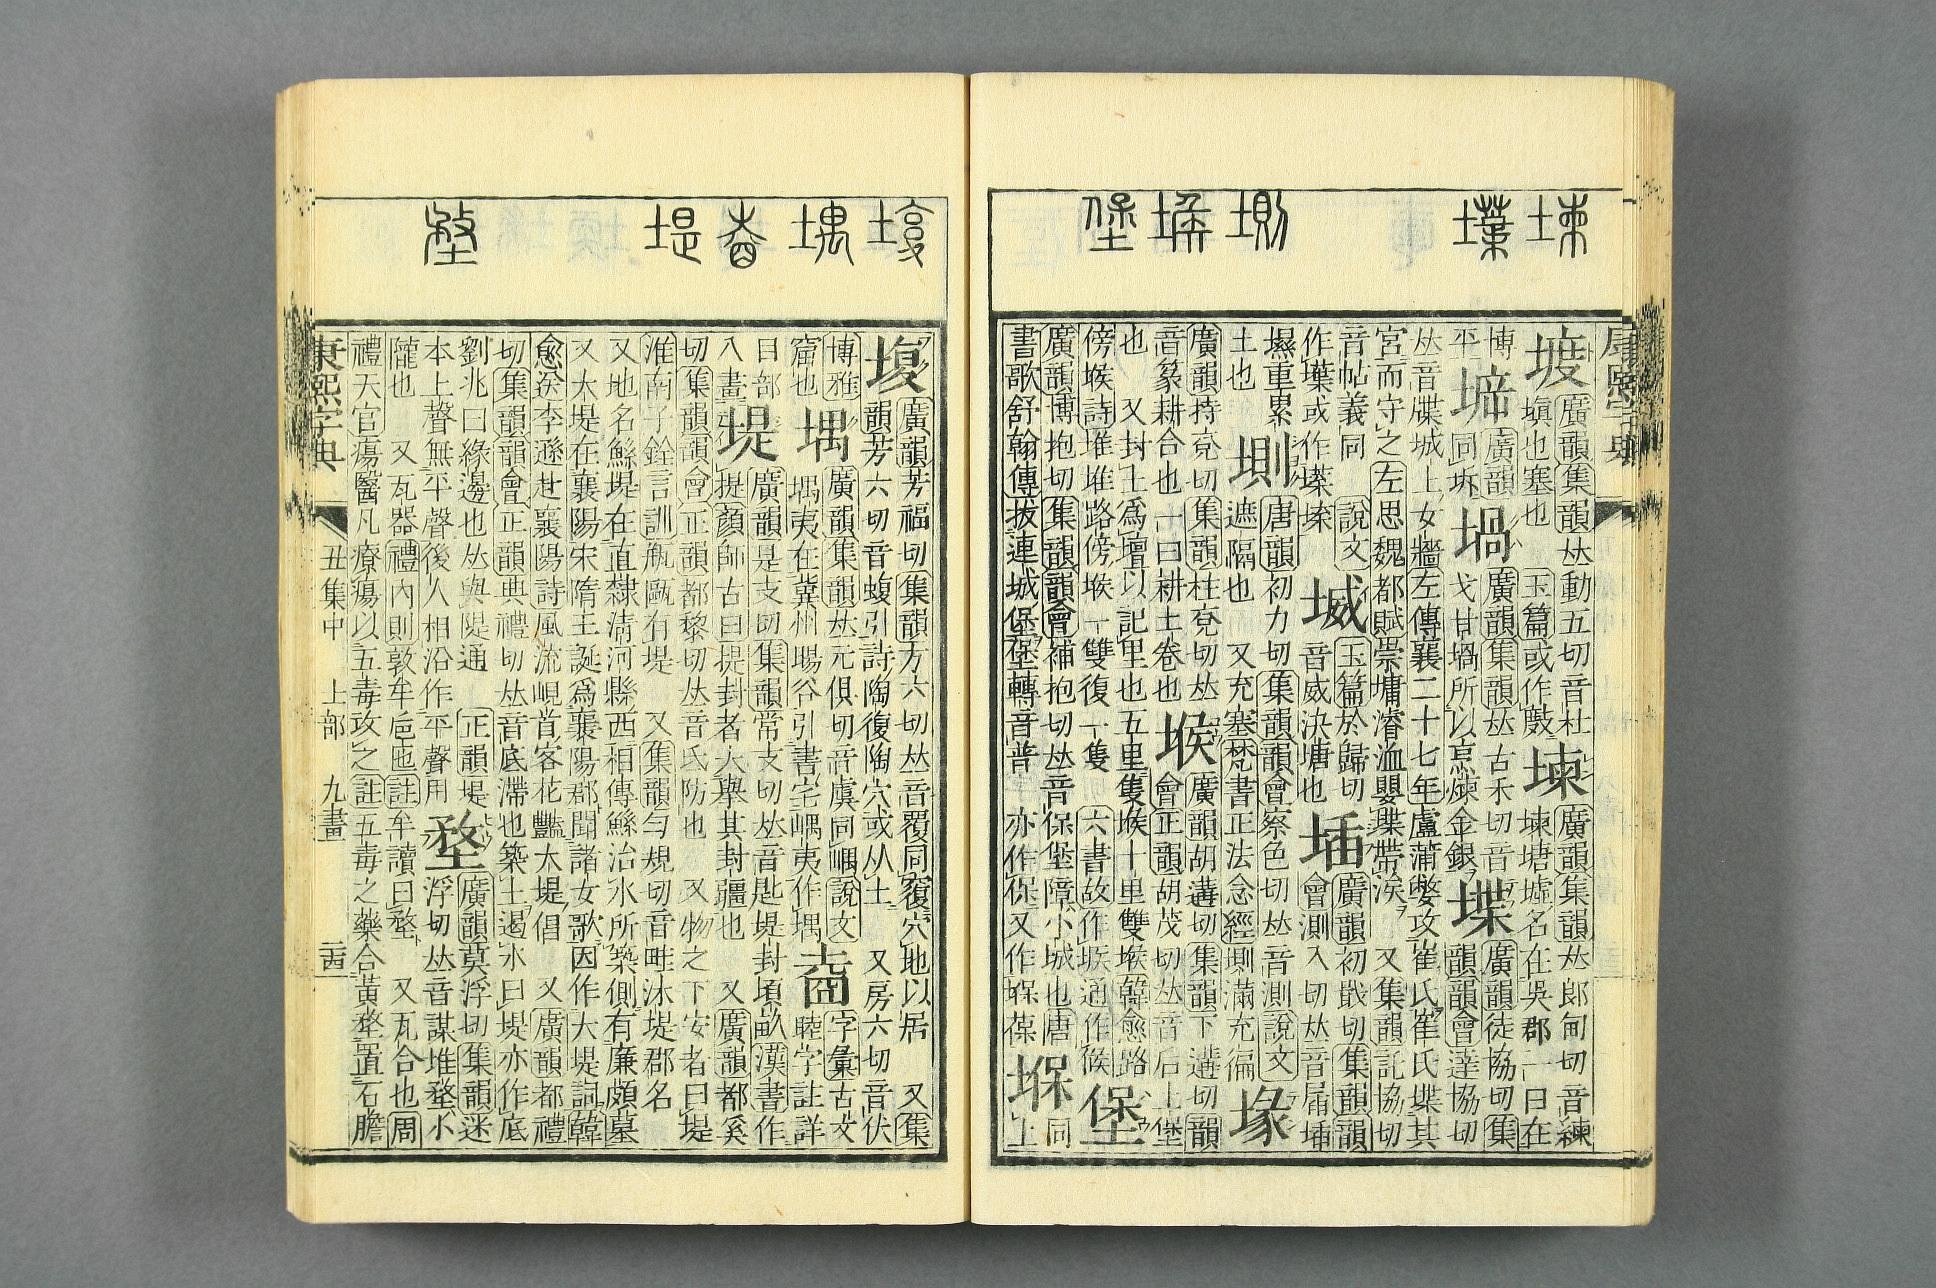 康熙字典
𡍨 廣韻集韻𠀤動五切音杜
塡也塞也 玉篇或作㪧 堜 廣韻集韻𠀤郎甸切音練
堜塘墟名在吳郡一曰在
博平 㖷 廣韻同坼 堝 廣韻集韻𠀤古禾切音
戈甘堝所以烹煉金銀 堞 廣韻徒協切集韻韻會達協切
𠀤音牒城上女牆左傳襄二十七年盧蒲嫳攻崔氏崔氏堞其
宮而守之左思魏都賦崇墉濬洫嬰堞帶涘 又集韻託協切
音帖義同 說文
作㙪或作㙷㙞 堿 玉篇於歸切
音威決塘也 𡍪 廣韻初戢切集韻韻
會測入切𠀤音届𡍪
㙷重累
土也 堲 唐韻初力切集韻韻會察色切𠀤音測說文
遮隔也 又充塞梵書正法念經堲滿充徧 堟
廣韻持兗切集韻柱兗切𠀤
音篆耕合也一曰耕土卷也 堠 廣韻胡遘切集韻下遘切韻
會正韻胡茂切𠀤音后土堡
也 又封土爲壇以記里也五里隻堠十里雙堠韓愈路
傍堠詩堆堆路傍堠一雙復一隻 六書故作堠通作候 堡
廣韻博抱切集韻韻會補抱切𠀤音保堡障小城也唐
書歌舒翰傳拔連城堡堡轉音普 亦作保又作堢葆 堢 同
上
𡎊 廣韻芳福切集韻方六切𠀤音覆同𥨍穴地以居 又集
韻芳六切音蝮引詩陶復陶穴或从土 又房六切音伏
博雅
窟也 堣 廣韻集韻𠀤元俱切音虞同嵎說文
堣夷在冀州暘谷引書宅嵎夷作堣 𡍴 字彙古文
睦字註詳
目部
八畫 堤 廣韻是支切集韻常支切𠀤音匙堤封頃畝漢書作
提顏師古曰提封者大舉其封疆也 又廣韻都奚
切集韻韻會正韻都黎切𠀤音氐防也 又物之下安者曰堤
淮南子銓言訓瓶甌有堤 又集韻勻規切音畦沐堤郡名
又地名鯀堤在直隸淸河縣西相傳鯀治水所築側有廉頗墓
又大堤在襄陽宋隋王誕爲襄陽郡聞諸女歌因作大堤詞韓
愈送李遜赴襄陽詩風流峴首客花豔大堤倡 又廣韻都禮
切集韻韻會正韻典禮切𠀤音底滯也築土遏水曰堤亦作底
劉兆曰緣邊也𠀤與隄通 正韻堤
本上聲無平聲後人相沿作平聲用 堥 廣韻莫浮切集韻迷
浮切𠀤音謀堆堥小
隴也 又瓦器禮內則敦牟卮匜註牟讀曰堥 又瓦合也周
禮天官瘍醫凡療瘍以五毒攻之註五毒之藥合黃堥置石膽
康熙字典
丑集中 土部 九畫 二四